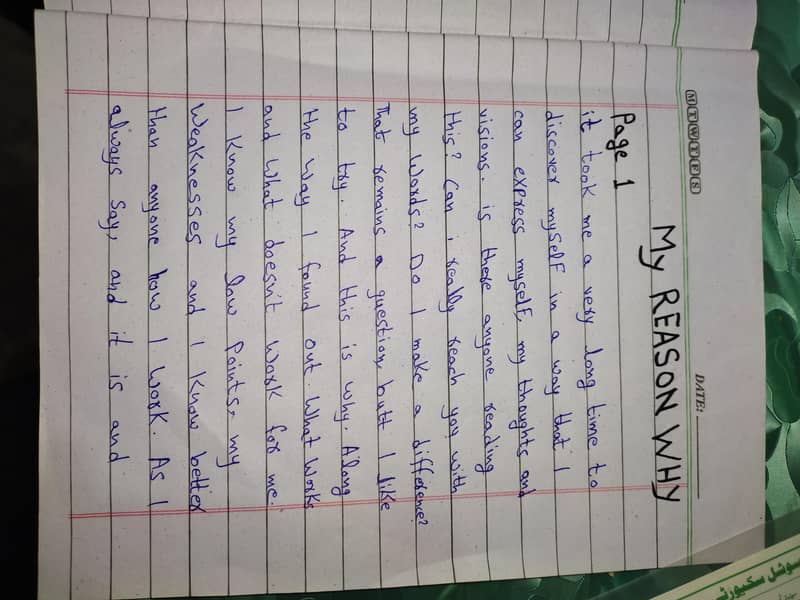 M T W T F S S
DATE:
My REASON WHY
Page 1
it took me a very long time to
discover myself in a way that I
can express myself, my thoughts and
visions. is there anyone reading
this? Can i really reach you with
my words? Do I make a difference?
That remains a question, butt I like
to try. And this is why. Along
the way I found out. What works
and what doesn't work for me.
I know my low points, my
weaknesses and I know better
than anyone how I work. As I
always say, and it is and
سوشل سکیورٹی